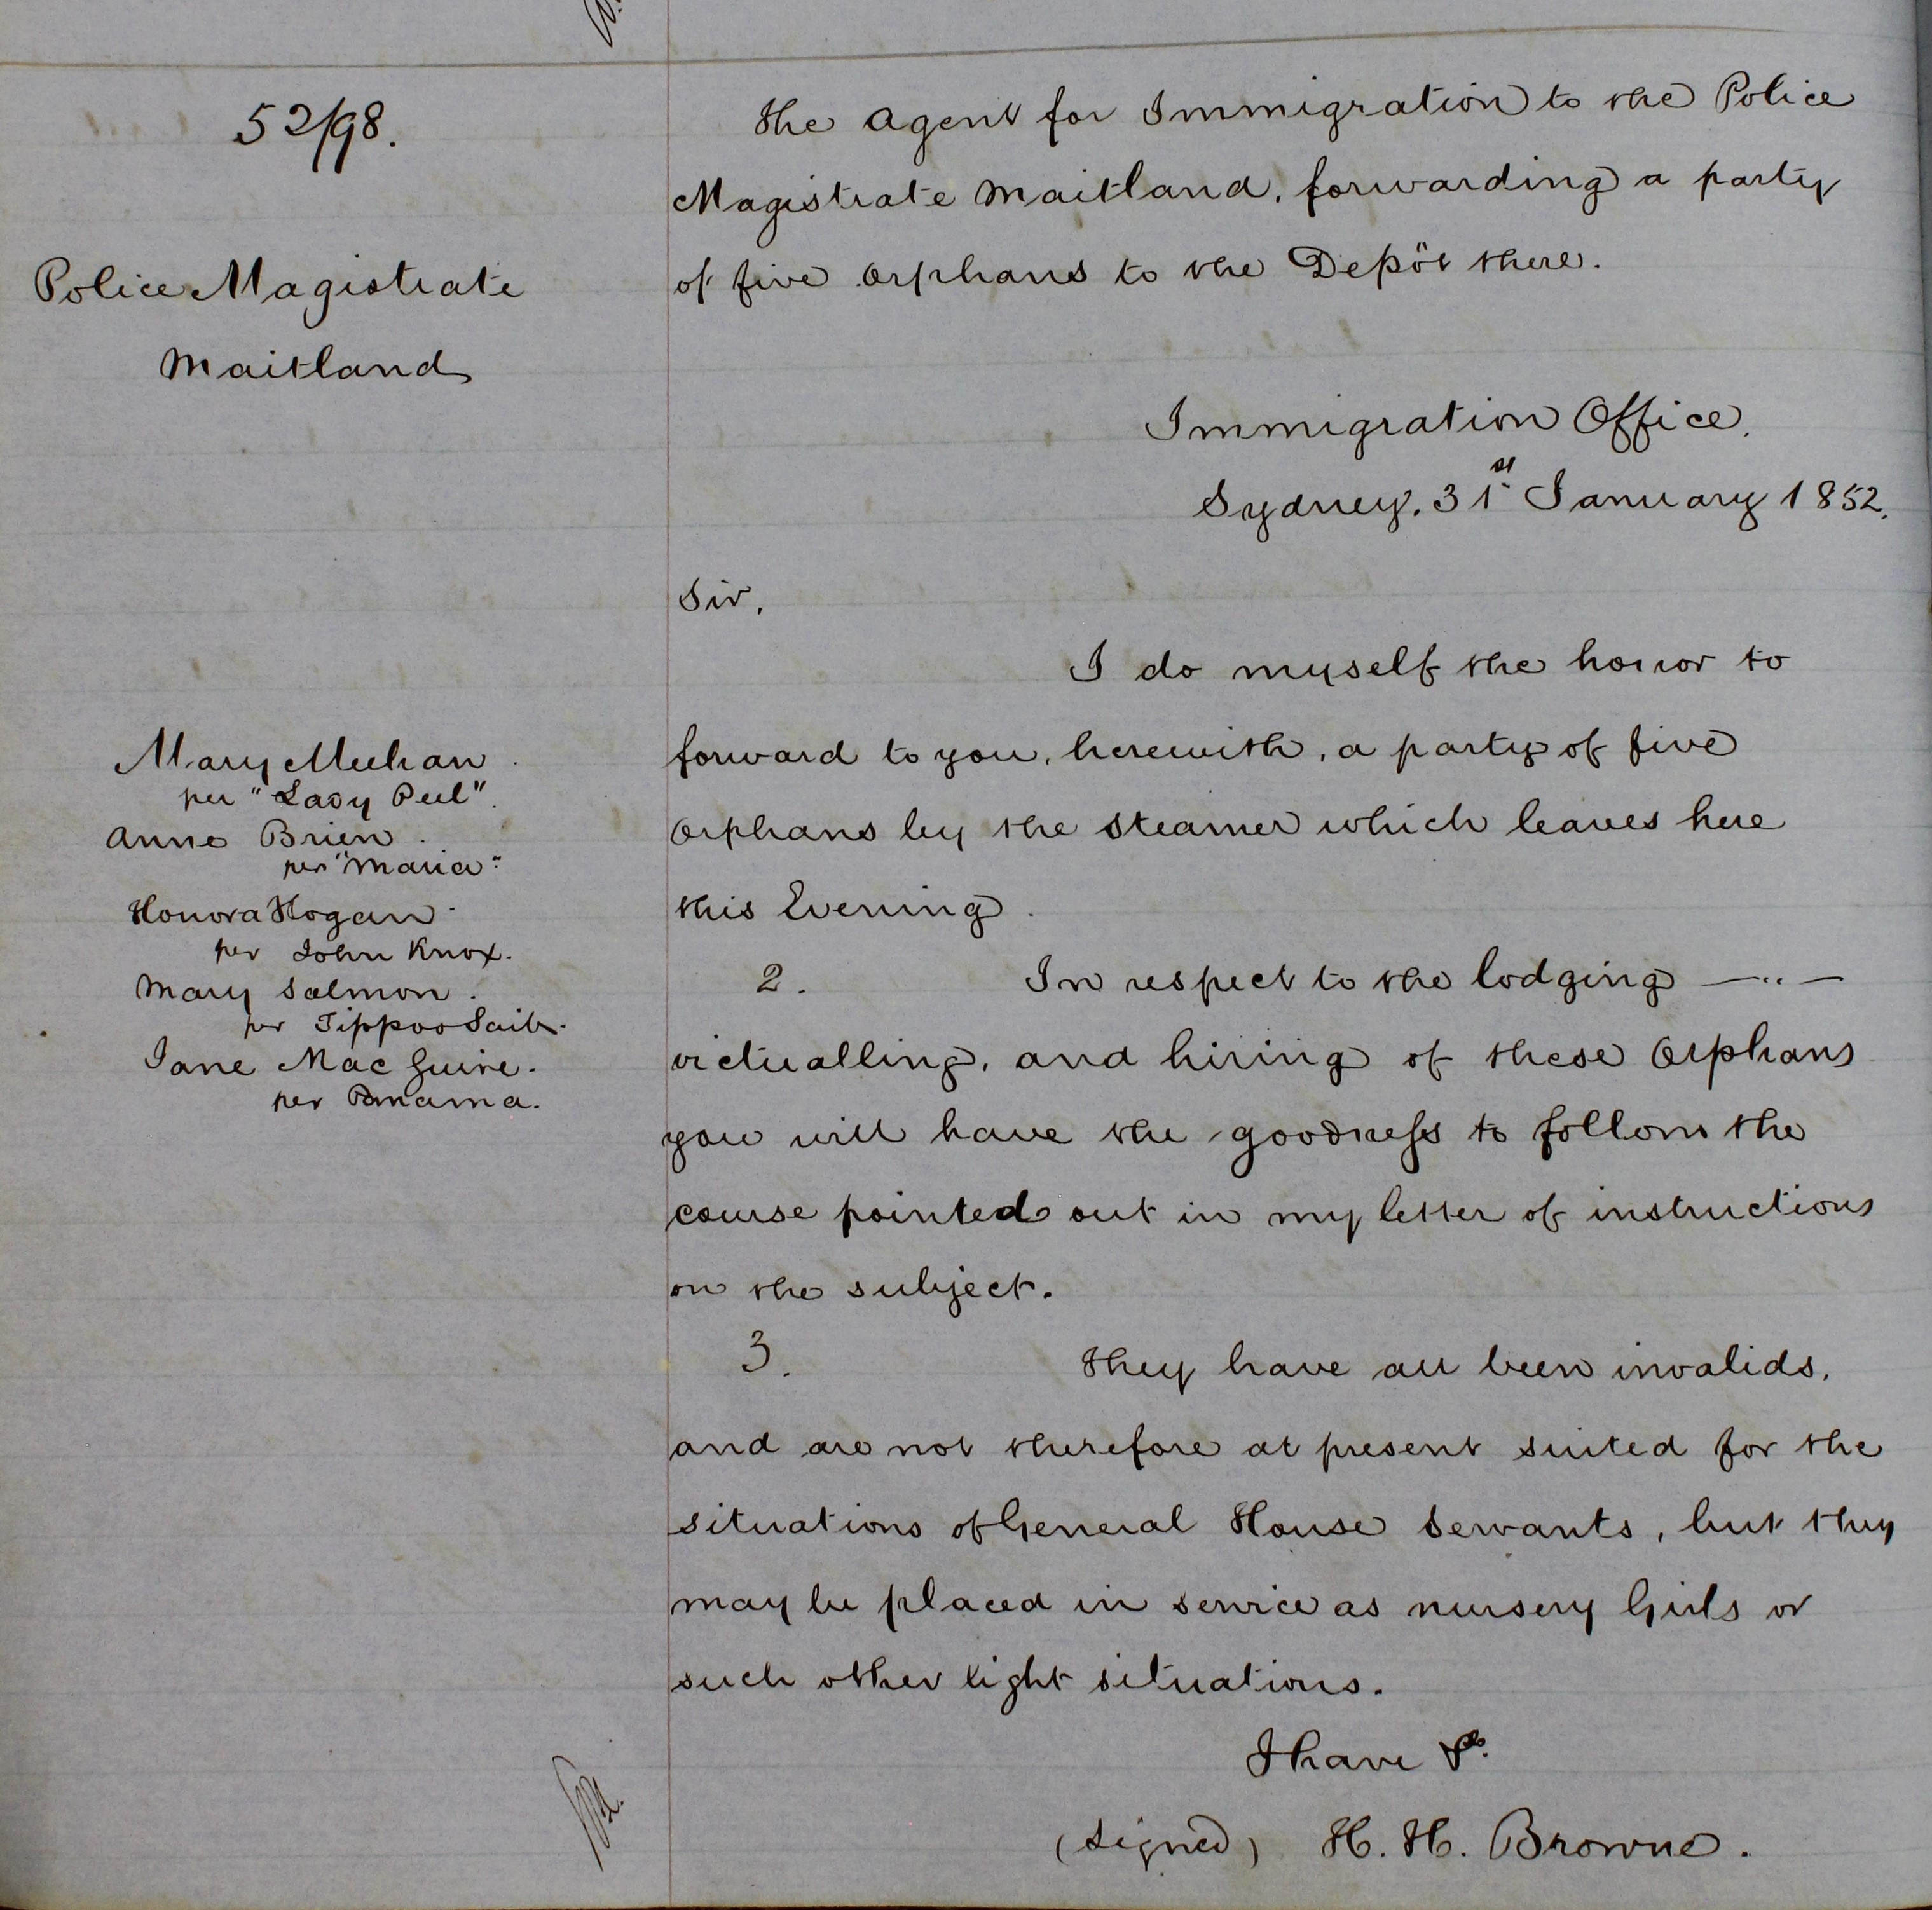 52/98.
Police Magistrate
Maitland
The Agent for Immigration to the Police
Magistrate Maitland, forwarding a party
of five Orphans to the Depôt there.
Immigration Office.
Sydney, 31st January 1852.
Sir,
I do myself the honor to
forward to you, herewith, a party of five
Orphans by the Steamer which leaves here
this Evening.
Mary Meehan.
per "Lady Peel".
Anne Brien.
per "Maria".
Honora Hogan.
per John Knox.
Mary Salmon.
per Tippoo Saib.
Jane MacGuire.
per Panama.
2. In respect to the lodging
victualling, and hiring of these Orphans
you will have the goodness to follow the
course pointed out in my letter of instructions
on the subject.
3. They have all been invalids,
and are not therefore at present suited for the
situations of General House Servants, but they
may be placed in service as nursery Girls or
such other light situations.
I have &c.
(Signed) H. H. Browne.